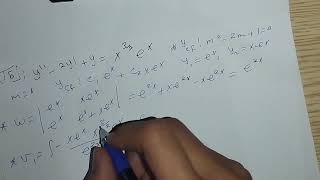 y'' - 2y' + y = x^{3/2} e^x * y_{cf}: m² - 2m + 1 = 0
m = 1 y_{cf}: c₁ e^x + c₂ x e^x y₁ = e^x, y₂ = x e^x
* W = | e^x x e^x ; e^x e^x + x e^x | = e^{2x} + x e^{2x} - x e^{2x} = e^{2x}
* v₁ = ∫ - x e^x x^{3/2}